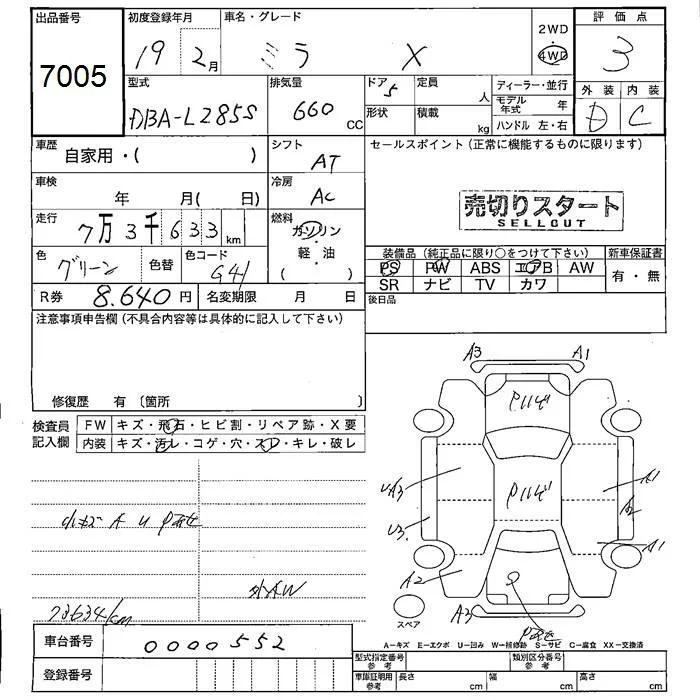 出品番号 初度登録年月 車名・グレード 2WD 評価点
7005 19 2月 ミラ X 4WD 3
型式 排気量 ドア 5 定員 人 ディーラー・並行 外装 内装
DBA-L285S 660 CC 形状 積載 kg モデル年式 年 D C
ハンドル 左・右
車歴 自家用・( ) シフト AT セールスポイント(正常に機能するものに限ります)
車検 年 月(日) 冷房 AC 売切りスタート
SELLOUT
走行 7万3千633km 燃料 ガソリン・軽・油( )
色 グリーン 色替 色コード G41 装備品(純正品に限り○をつけて下さい) 新車保証書
PS PW ABS エアB AW 有・無
SR ナビ TV カワ
R券 8.640円 名変期限 月 日 後日品
注意事項申告欄(不具合内容等は具体的に記入して下さい)
修復歴 有〔箇所 〕
検査員記入欄 FW キズ・飛石・ヒビ割・リペア跡・X要
内装 キズ・汚レ・コゲ・穴・スレ・キレ・破レ
A3 A1
Pハゼ
Pハゼ
UA3 A1
U3. A2
A1
A2
A3
小キズ A U P
外AW
73634km
スペア
A-キズ E-エクボ U-凹み W-補修跡 S-サビ C-腐食 XX-交換済
車台番号 0000552
登録番号
型式指定番号 参考 類別区分番号 参考
車庫証明用 参考 長さ cm 幅 cm 高さ cm